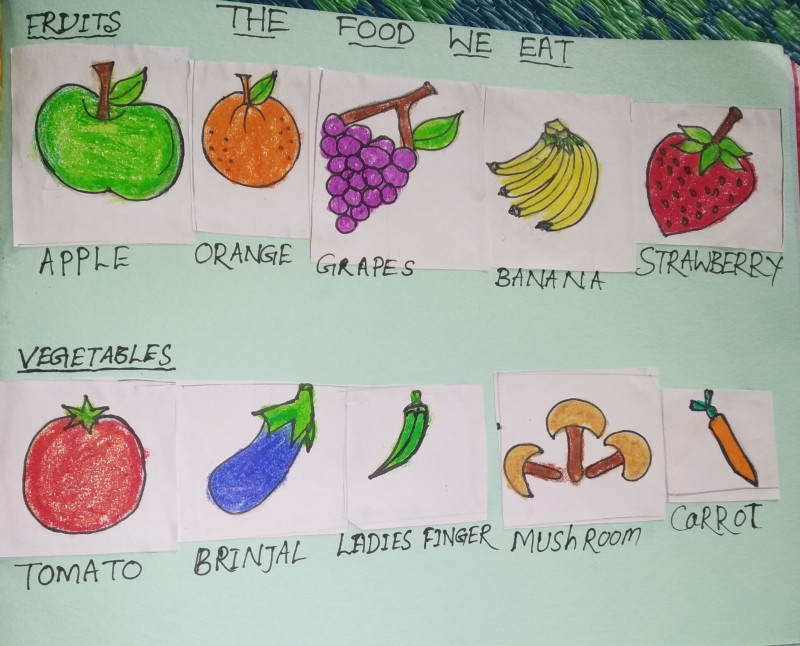 FRUITS
THE FOOD WE EAT
APPLE
ORANGE
GRAPES
BANANA
STRAWBERRY
VEGETABLES
TOMATO
BRINJAL
LADIES FINGER
MUshROOM
CaRROT